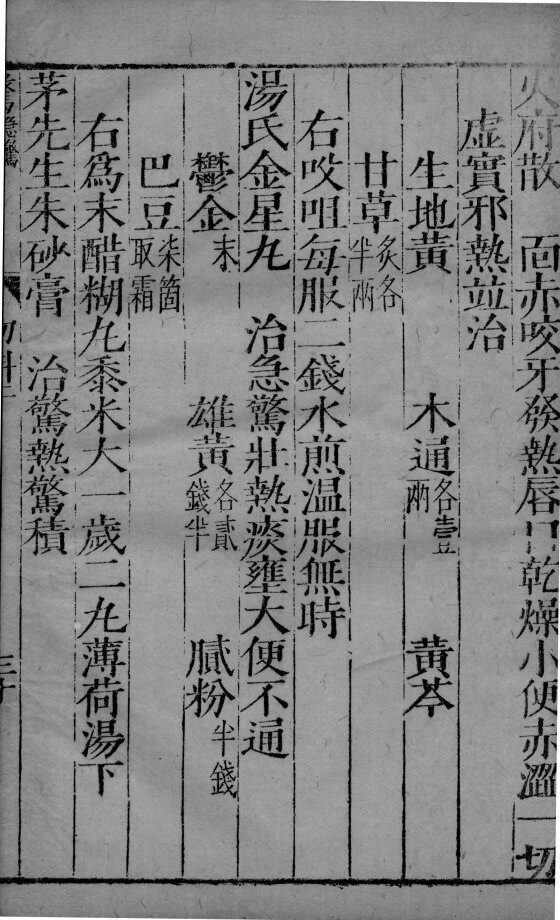 火府散　面赤咬牙發熱唇口乾燥小便赤澀一切
虛實邪熱竝治
生地黄　木通各壹兩　黄芩
甘草炙各半兩
右㕮咀每服二錢水煎温服無時
湯氏金星丸　治急驚壯熱痰壅大便不通
鬱金末　雄黄各貳錢半　膩粉半錢
巴豆柒箇取霜
右爲末醋糊丸黍米大一歲二丸薄荷湯下
茅先生朱砂膏　治驚熱驚積